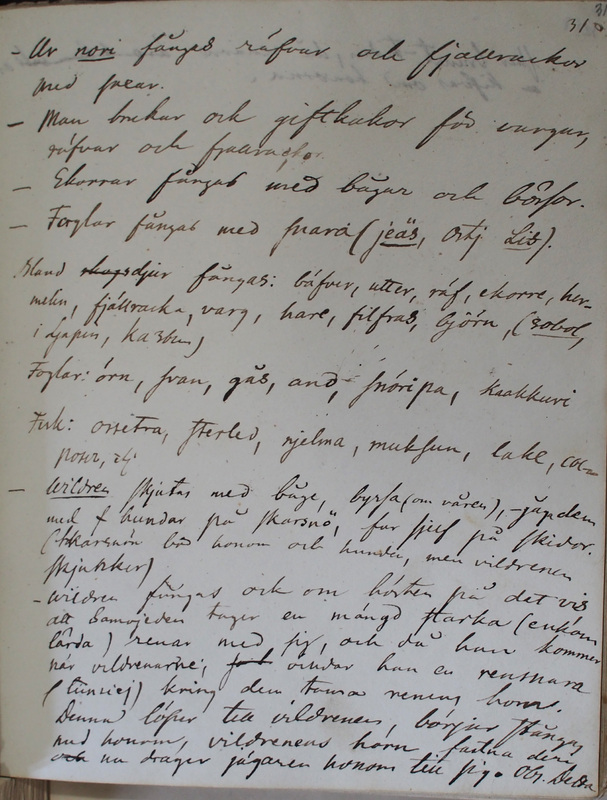 31
– Ur nori fångas räfvar och fjällrackor
med snaar.
– Man brukar och giftkakor för vargar,
räfvar och fjallrackor.
– Ekorrar fångas med bågar och bössor.
– Foglar fångas med snara (jeäs, Ostj Lis).
Bland skogsdjur fångas: bäfver, utter, räf, ekorre, her-
melin, fjällracka, varg, hare, filfras, björn, (sobol,
i Ljapin, Kazym)
Foglar: örn, svan, gås, and, snöripa, kaakkuri
Fisk: ossetra, sterled, njelma, muksun, lake,
– Wildren skjutas med båge, byssa (om våren),
med hundar på skarsnö, far sjelf på skidor.
(skarsnön bär honom och hunden, men vildrenen
sjunker)
– Wildren fångas och om hösten på det vis
att Samojeden tager en mängd starka
lärda) renar med sig, och då han kommer
när vildrenarne, binder han en rensnara
kring den tama renens horn.
Denna löper till vildrenen, börjar stångas
med honom, vildrenens horn fastna deri
och nu drager jägaren honom till sig. Obs.